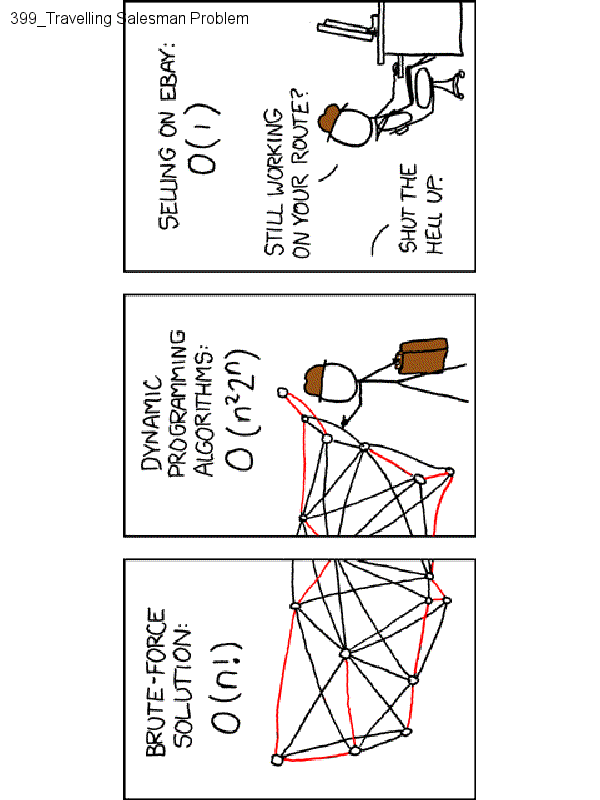 399_Travelling Salesman Problem
BRUTE-FORCE
SOLUTION:
O(n!)
DYNAMIC
PROGRAMMING
ALGORITHMS:
O(n²2ⁿ)
SELLING ON EBAY:
O(1)
STILL WORKING
ON YOUR ROUTE?
SHUT THE
HELL UP.